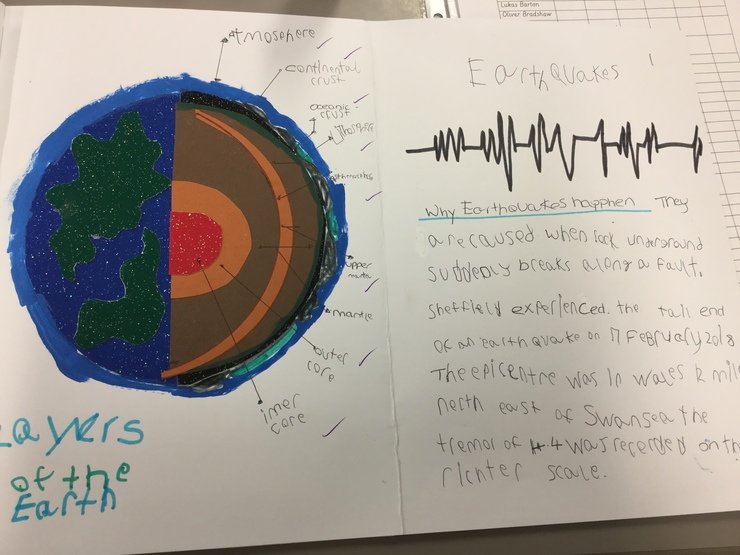 Lukas Barton
Oliver Bradshaw
Atmosphere
continental
crust
oceanic
crust
upper
mantle
mantle
outer
core
inner
core
Layers
of the
Earth
Earthquakes
Why Earthquakes happhen They
are caused when rock underground
suddenly breaks along a fault.
Sheffield experienced. the tail end
of an earthquake on 17 February 2018
The epicentre was in wales
north east of Swansea the
tremor of 4.4 was recorded on the
richter scale.